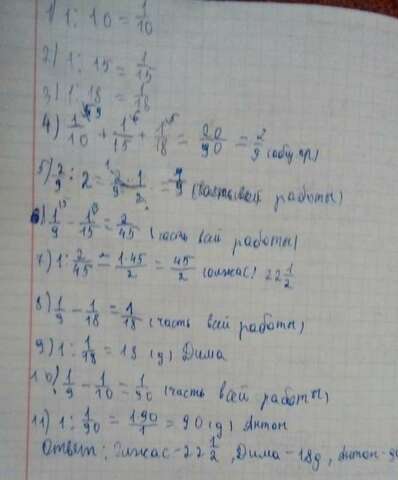 1) 1 : 10 = 1/10
2) 1 : 15 = 1/15
3) 1 : 18 = 1/18
4) 1/10 + 1/15 + 1/18 = 20/90 = 2/9 (общ.пр)
5) 2/9 : 2 = 2/9 · 1/2 = 1/9 (часть всей работы)
6) 1/9 - 1/15 = 2/45 (часть всей работы)
7) 1 : 2/45 = 1·45/2 = 45/2 (олжас) 22 1/2
8) 1/9 - 1/18 = 1/18 (часть всей работы)
9) 1 : 1/18 = 18 (д) Дима
10) 1/9 - 1/10 = 1/90 (часть всей работы)
11) 1 : 1/90 = 190/1 = 90 (д) Антон
Ответ: Олжас - 22 1/2, Дима - 18д, Антон - 90